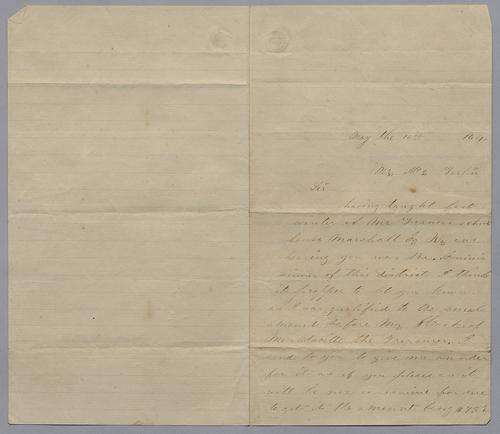 May the 10th
Mr Mc
Sir
having taught last
winter at Mr school
house Marshall Co Ky and
hearing you was the Commis
sioner of this district I think
it propper to let you know
as I was qualified to the usual
amount before Mr
the Treasurer. I
send to you to give me an order
for it as if you please as it
will be more convenient for me
to get it the amount being $75